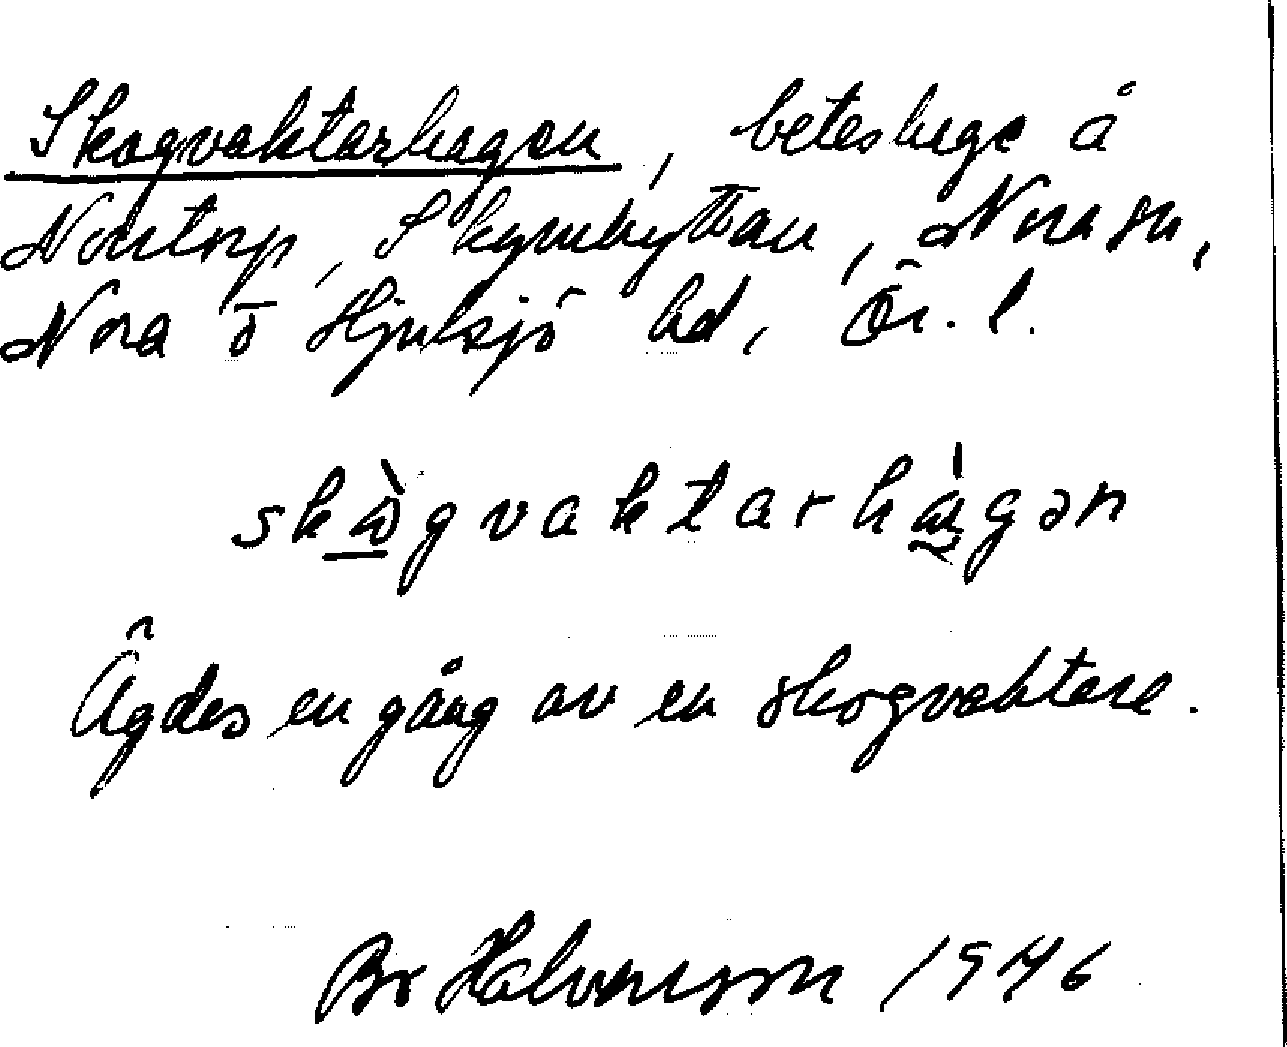 Skogvaktarhagen, beteshage å
Nortorp, Skymhyttan, Nora sn,
Nora o Hjulsjö hd, Ör. l.
skògvaktarhàgən
Ägdes en gång av en skogvaktare.
Br Halvarsson 1946